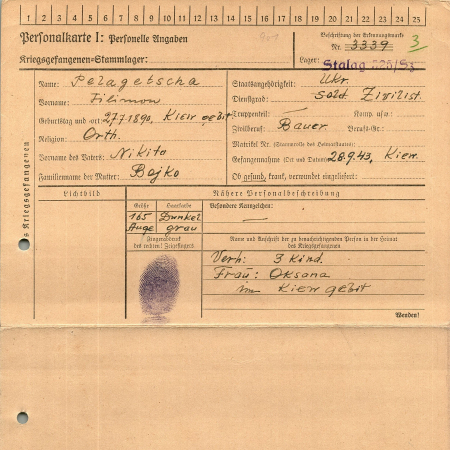 1 2 3 4 5 6 7 8 9 10 11 12 13 14 15 16 17 18 19 20 21 22 23 24 25
Personalkarte I: Personelle Angaben
Kriegsgefangenen-Stammlager:
Beschriftung der Erkennungsmarke
Nr. 3339 3
Lager: Stalag 325/Sz
Name: Pelagetscha
Vorname: Filimon
Geburtstag und -ort: 27.7.1890, Kiew gebit
Religion: Orth.
Vorname des Vaters: Nikita
Familienname der Mutter: Bojko
Staatsangehörigkeit: Ukr.
Dienstgrad: sold Zivilist.
Truppenteil: — Komp. usw.:
Zivilberuf: Bauer Berufs-Gr.:
Matrikel Nr. (Stammrolle des Heimatstaates):
Gefangennahme (Ort und Datum): 28.9.43, Kiew.
Ob gesund, krank, verwundet eingeliefert:
des Kriegsgefangenen
Lichtbild
Nähere Personalbeschreibung
Größe Haarfarbe
165 Dunkel
Auge grau
Besondere Kennzeichen:
—
Fingerabdruck
des rechten Zeigefingers
Name und Anschrift der zu benachrichtigenden Person in der Heimat
des Kriegsgefangenen
Verh: 3 Kind.
Frau: Oksana
im Kiew gebit
Wenden!